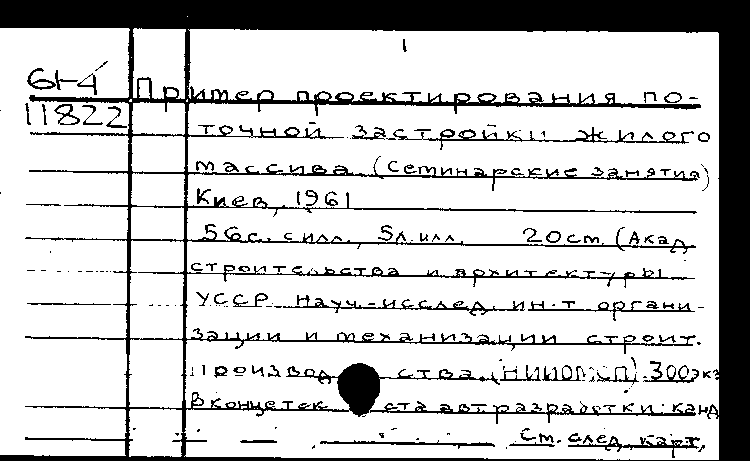 1
61-4
11822
Пример проектирования по-
точной застройки жилого
массива. (Семинарские занятия)
Киев, 1961
56с. с илл., 5л. илл. 20см. (Акад.
строительства и архитектуры
УССР. Науч.-исслед. ин-т органи-
зации и механизации строит.
производ ства. (НИИОМСП). 300экз
В конце тек ста авт. разработки: канд
См. след. карт.